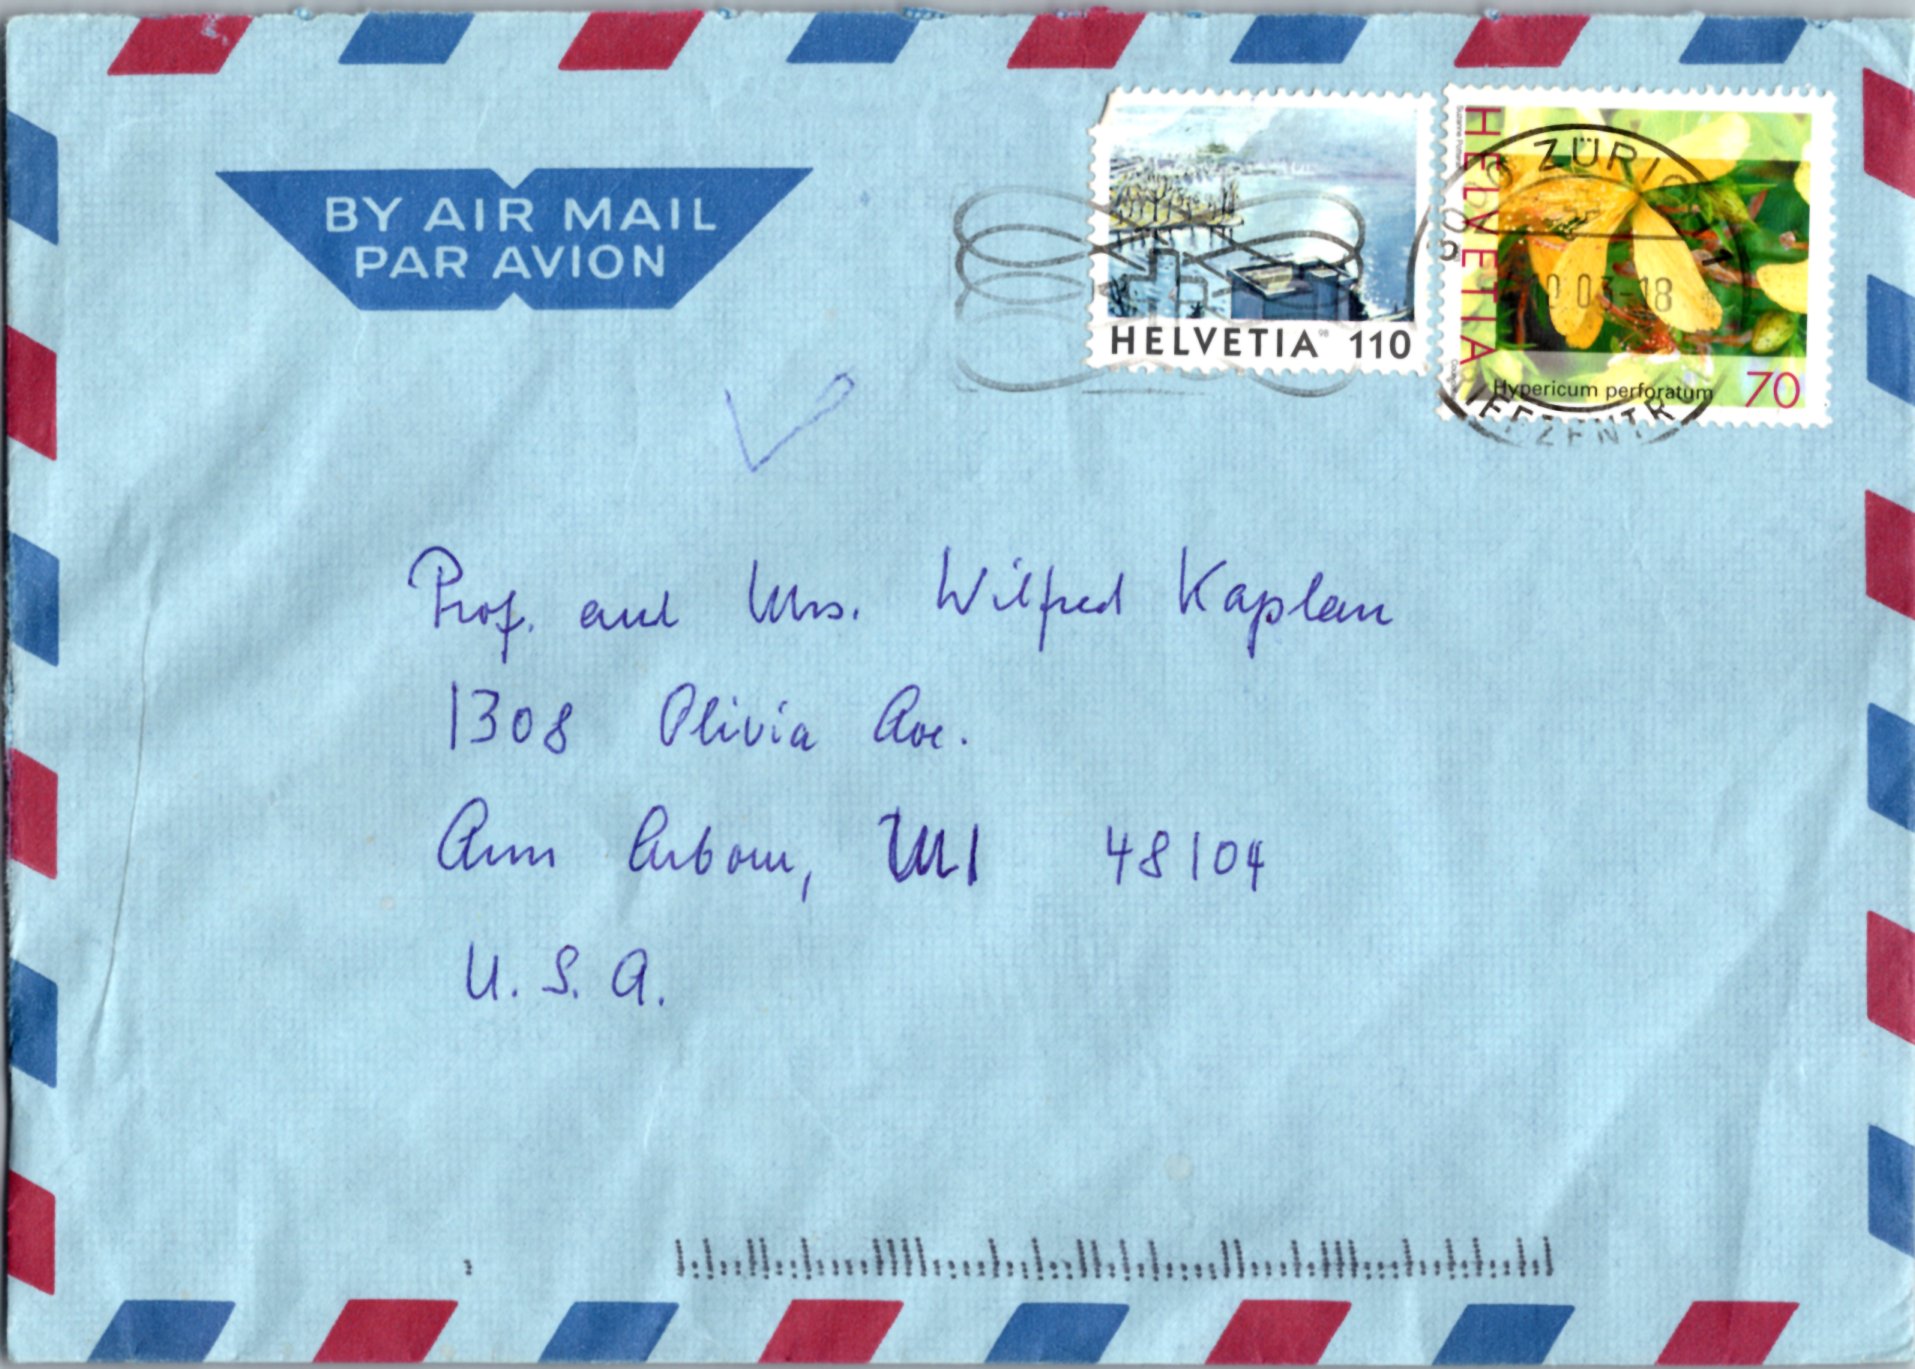 BY AIR MAIL
PAR AVION
HELVETIA 98 110
HELVETIA
Hypericum perforatum 70
ZÜRICH
03-18
Prof. and Mrs. Wilfred Kaplan
1308 Olivia Ave.
Ann Arbor, MI 48104
U. S. A.